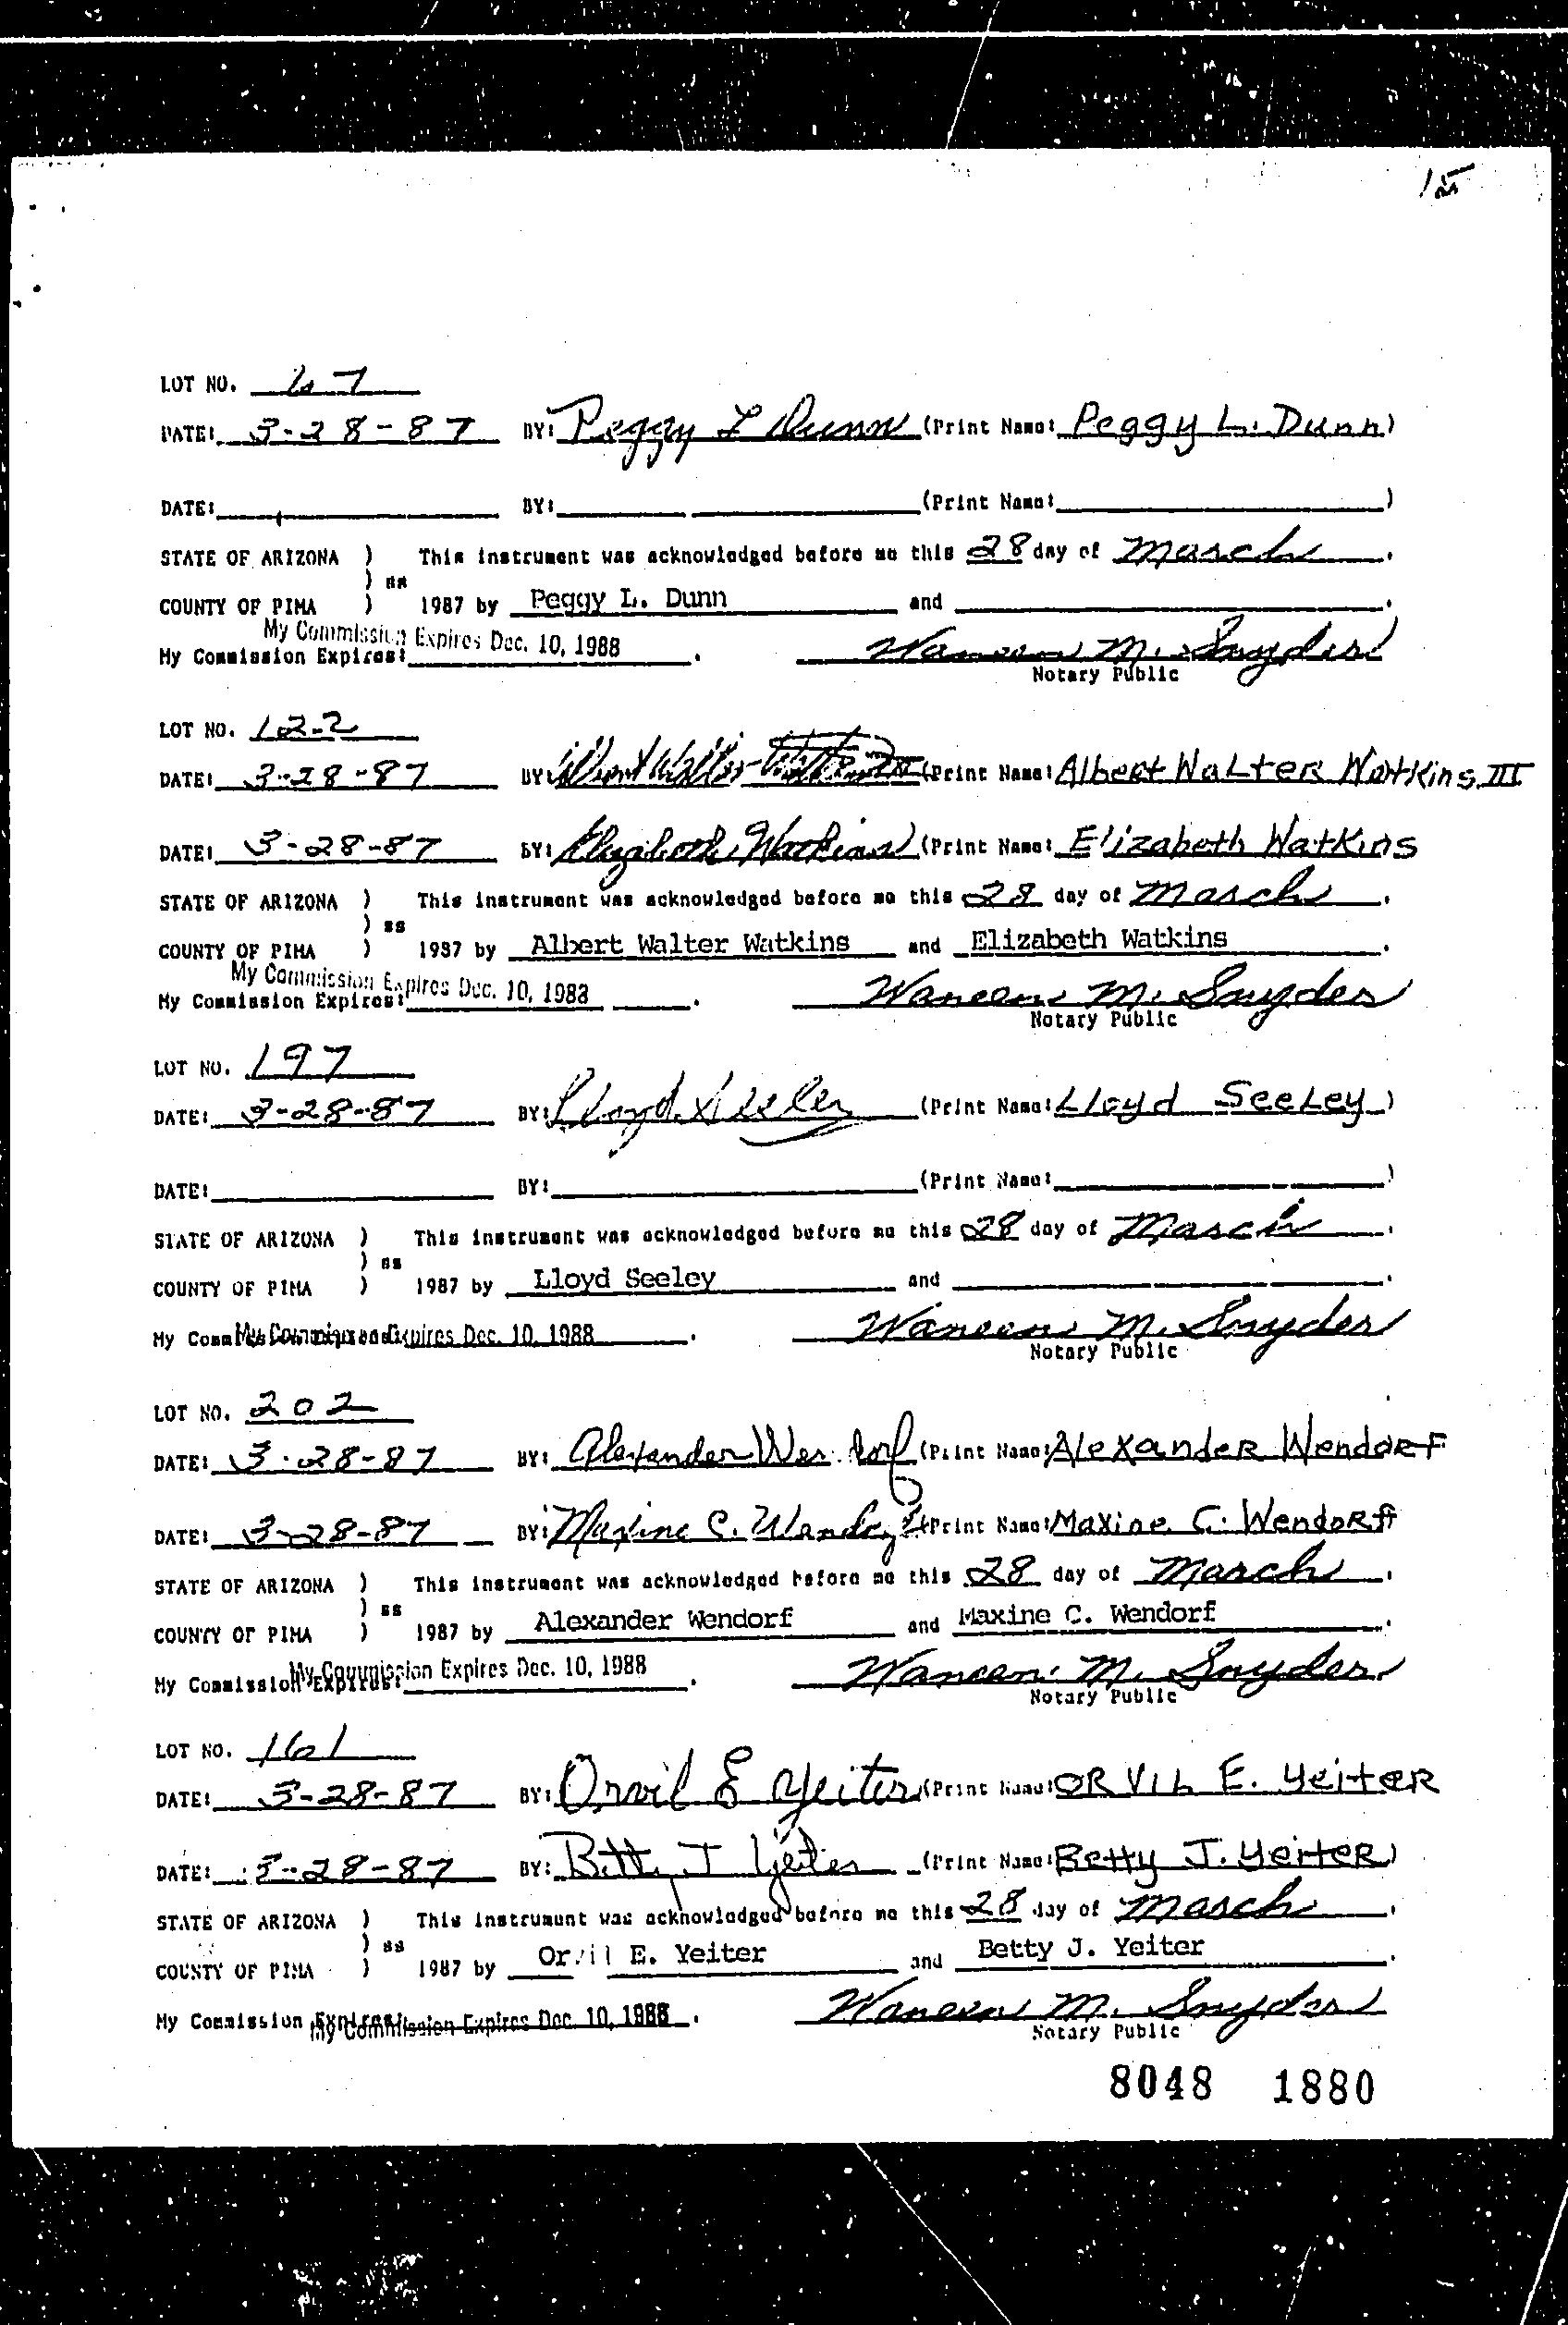 LOT NO. 67
DATE: 3-28-87 BY: Peggy L Dunn (Print Name: Peggy L. Dunn)
DATE: BY: (Print Name: )
STATE OF ARIZONA ) This instrument was acknowledged before me this 28 day of March.
) ss
COUNTY OF PIMA ) 1987 by Peggy L. Dunn and .
My Commission Expires Dec. 10, 1988
My Commission Expires: . M. Snyder
Notary Public
LOT NO. 122
DATE: 3-28-87 BY: Albert Walter Watkins III (Print Name: Albert Walter Watkins III
DATE: 3-28-87 BY: Elizabeth Watkins (Print Name: Elizabeth Watkins
STATE OF ARIZONA ) This instrument was acknowledged before me this 28 day of March.
) ss
COUNTY OF PIMA ) 1987 by Albert Walter Watkins and Elizabeth Watkins.
My Commission Expires Dec. 10, 1988
My Commission Expires: . M. Snyder
Notary Public
LOT NO. 197
DATE: 3-28-87 BY: Lloyd Seeley (Print Name: Lloyd Seeley)
DATE: BY: (Print Name: )
STATE OF ARIZONA ) This instrument was acknowledged before me this 28 day of March.
) ss
COUNTY OF PIMA ) 1987 by Lloyd Seeley and .
My Commission Expires Dec. 10, 1988. M. Snyder
Notary Public
LOT NO. 202
DATE: 3-28-87 BY: Alexander Wendorf (Print Name: Alexander Wendorf
DATE: 3-28-87 BY: Maxine C. Wendorff (Print Name: Maxine C. Wendorff
STATE OF ARIZONA ) This instrument was acknowledged before me this 28 day of March.
) ss
COUNTY OF PIMA ) 1987 by Alexander Wendorf and Maxine C. Wendorf.
My Commission Expires Dec. 10, 1988
My Commission Expires: . M. Snyder
Notary Public
LOT NO. 161
DATE: 3-28-87 BY: Orvil E Yeiter (Print Name: ORVIL E. Yeiter
DATE: 3-28-87 BY: Betty J Yeiter (Print Name: Betty J. Yeiter)
STATE OF ARIZONA ) This instrument was acknowledged before me this 28 day of March.
) ss
COUNTY OF PIMA ) 1987 by Orvil E. Yeiter and Betty J. Yeiter.
My Commission Expires My Commission Expires Dec. 10, 1988. M. Snyder
Notary Public
8048 1880